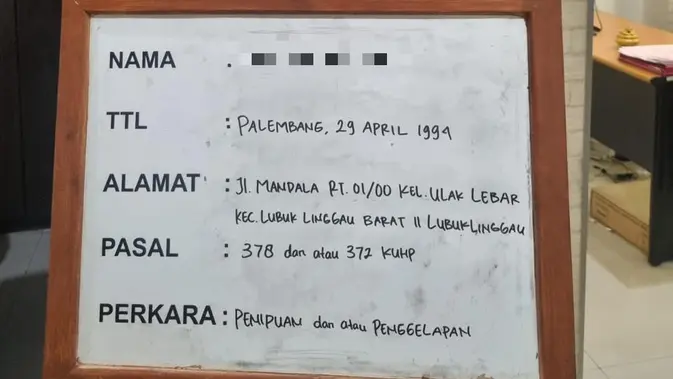 NAMA :
TTL : PALEMBANG, 29 APRIL 1994
ALAMAT : Jl. MANDALA RT. 01/00 KEL. ULAK LEBAR
KEC. LUBUK LINGGAU BARAT II LUBUKLINGGAU
PASAL : 378 dan atau 372 KUHP
PERKARA : PENIPUAN dan atau PENGGELAPAN